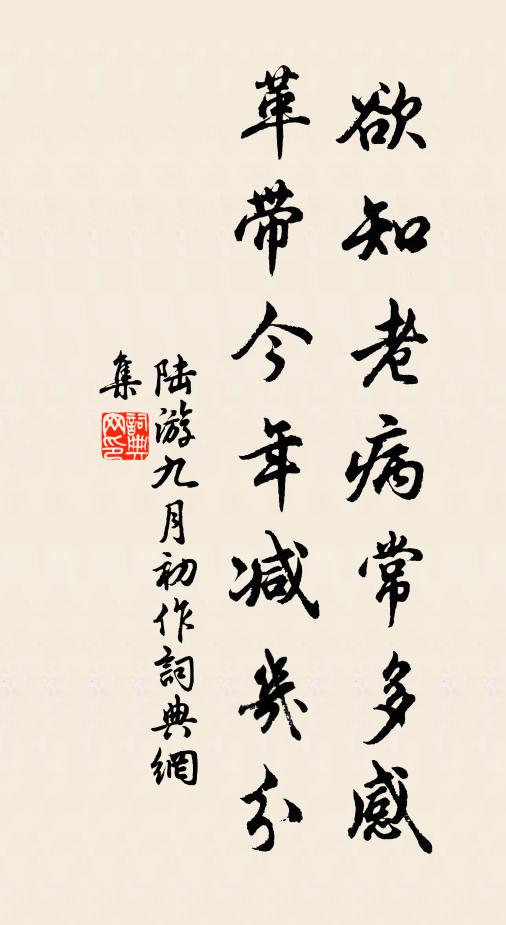 欲知老病常多感
革带今年减几分
陆游九月初作词典網
集
詞典网印